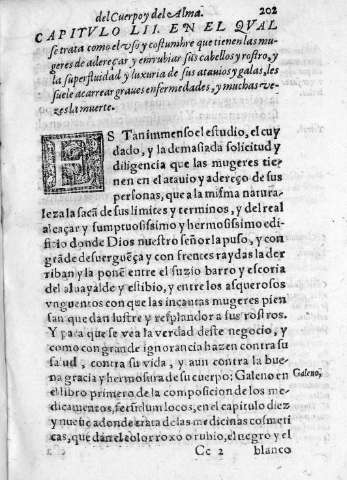 del Cuerpo y del Alma. 202
CAPITVLO LII. EN EL QVAL
se trata como el vso y costumbre que tienen las mu-
geres de adereçar y enrubiar sus cabellos y rostro, y
la superfluidad y luxuria de sus atauios y galas, les
suele acarrear graues enfermedades, y muchas ve-
zes la muerte.
ES Tan immenso el estudio, el cuy
dado, y la demasiada solicitud y
diligencia que las mugeres tie-
nen en el atauio y adereço de sus
personas, que a la misma natura-
leza la sacã de sus limites y terminos, y del real
alcaçar y sumptuosissimo y hermosissimo edi-
ficio donde Dios nuestro señor la puso, y con
grãde desuerguẽça y con frentes raydas la der
riban y la ponẽ entre el suzio barro y escoria
del aluayalde y estibio, y entre los asquerosos
vnguentos con que las incautas mugeres pien
san que dan lustre y resplandor a sus rostros.
Y para que se vea la verdad deste negocio, y
como con grande ignorancia hazen contra su
salud, contra su vida, y aun contra la bue-
na gracia y hermosura de su cuerpo: Galeno en
Galeno,
el libro primero de la composicion de los me-
dicamentos, secũdum locos, en el capitulo diez
y nueue adonde trata de las medicinas cosmeti
cas, que dan el color roxo o rubio, el negro y el
Cc 2 blanco